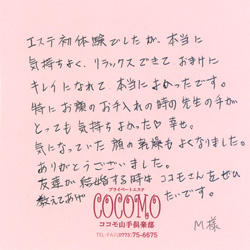 エステ初体験でしたが、本当に
気持ちよく、リラックスできて おまけに
キレイになれて、本当によかったです。
特にお顔のお手入れの時の先生の手が
とっても気持ちよかった♡ 幸せ。
気になっていた 顔の乾燥もよくなりました。
ありがとうございました。
友達が結婚する時は ココモさんをぜひ
教えてあげたいです。
プライベートエステ
COCOMO
ココモ山手倶楽部
TEL・FAX(0773)75-6675
M様